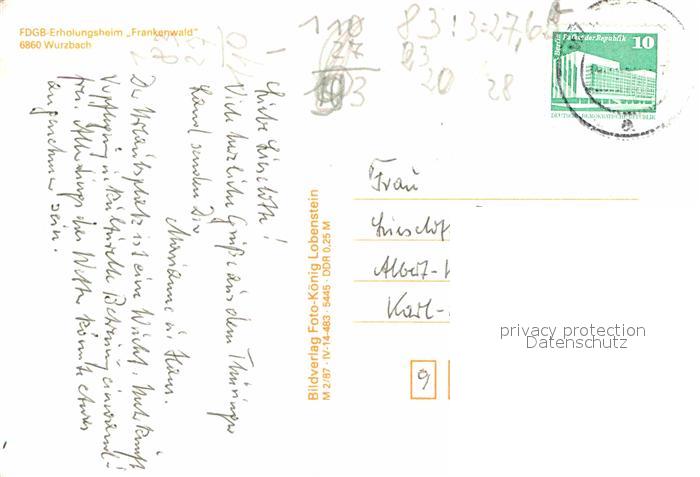 FDGB-Erholungsheim „Frankenwald“
6860 Wurzbach
Liebe Lieselotte!
Viele herzliche Grüße aus dem Thüringer
Land senden Dir
Marianne u. Hans.
Der Urlaubsplatz ist eine Wucht. Unterkunft
Verpflegung u. kulturelle Betreuung einwand-
frei. Allerdings das Wetter könnte etwas
angenehmer sein.
Bildverlag Foto-König Lobenstein
M 2/87 · IV-14-483 · 5445 · DDR 0,25 M
110
27
83:3=27,6
23
20
28
Berlin, Palast der Republik
10
DEUTSCHE DEMOKRATISCHE REPUBLIK
Frau
Albert-
Karl-
9
privacy protection
Datenschutz